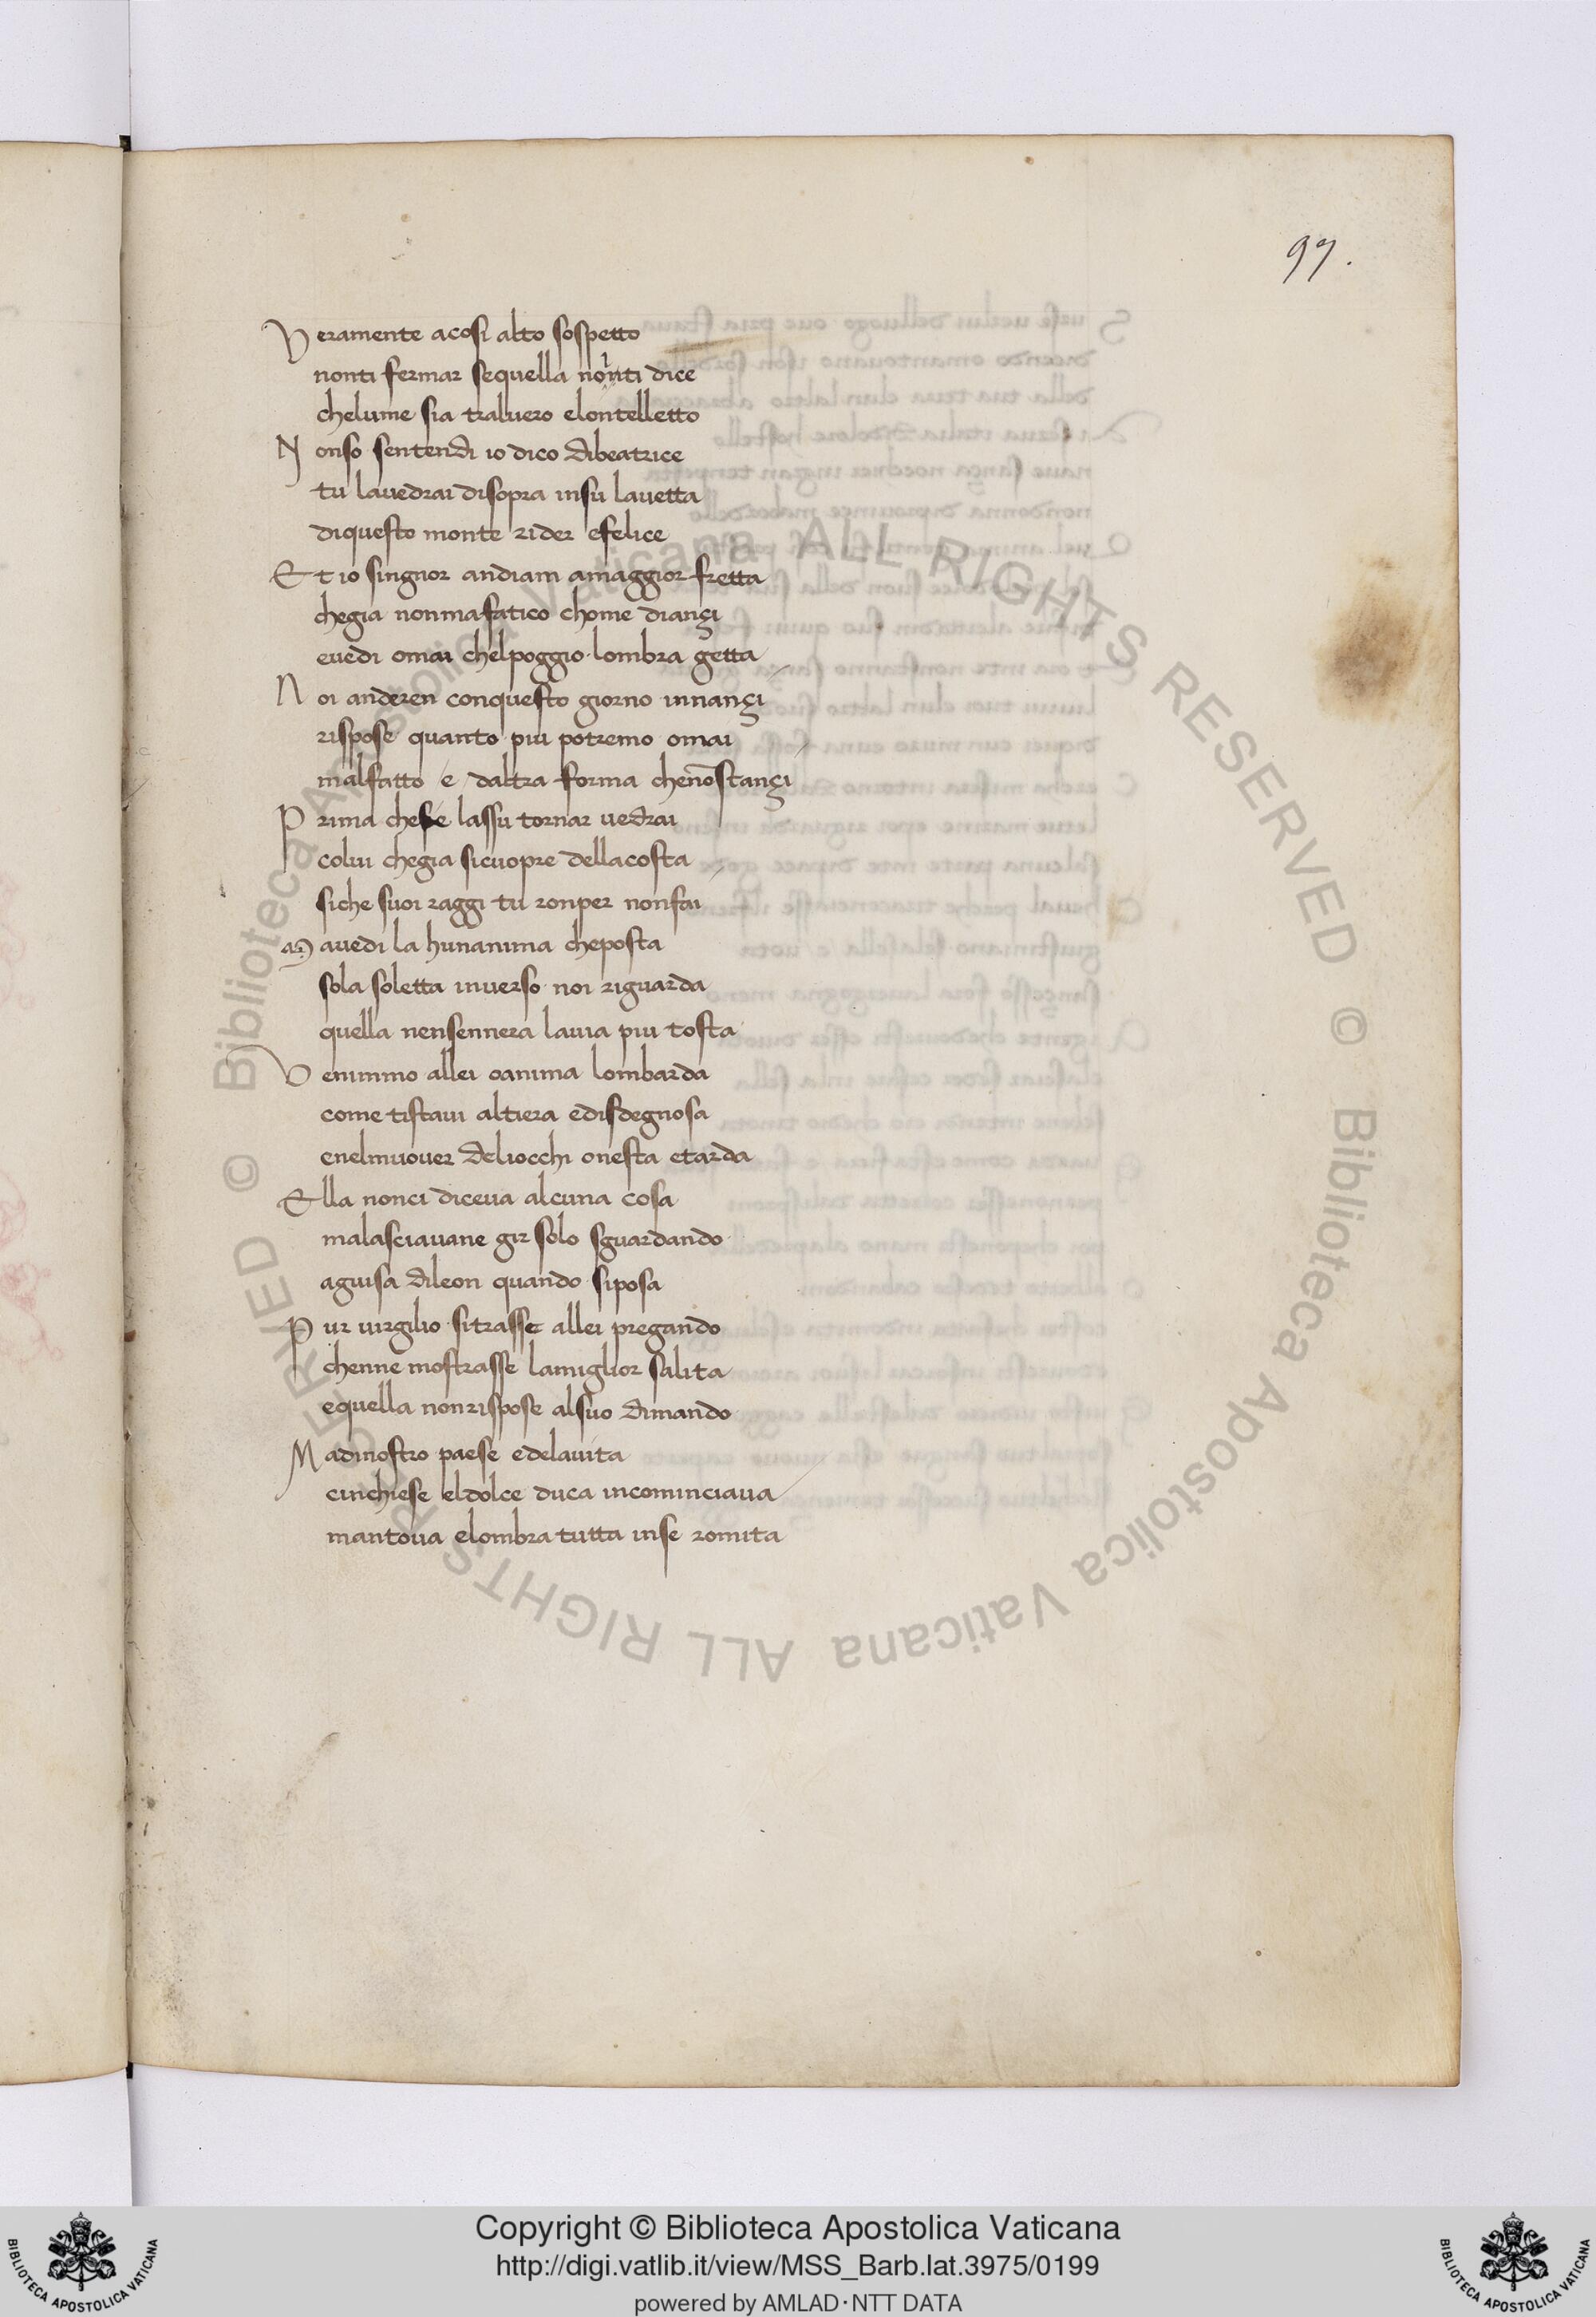 97.
Veramente acosi alto sospetto
nonti fermar sequella nonti dice
chelume sia traluero elontelletto
Nonso sentendi io dico dibeatrice
tu lauedrai disopra insu lauetta
diquesto monte rider efelice
Et io singnor andiam amaggior fretta
chegia nonmafatico chome diançi
euedi omai chelpoggio lombra getta
Noi anderen conquesto giorno innançi
rispose quanto piu potremo omai
malfatto e daltra forma chenōstançi
Prima che se lassu tornar uedrai
colui chegia sicuopre dellacosta
siche suoi raggi tu ronper nonfai
Mauedi la hunanima cheposta
sola soletta inuerso noi riguarda
quella nensennera lauia piu tosta
Venimmo allei oanima lombarda
come tistaui altiera edisdegnosa
enelmuouer deliocchi onesta etarda
Ella nonci diceua alcuna cosa
malasciauane gir solo sguardando
aguisa dileon quando siposa
Pur uirgilio sitrasse allei pregando
chenne mostrasse lamiglior salita
equella nonrispose alsuo dimando
Madinostro paese edelauita
cinchiese eldolce duca incominciaua
mantoua elombra tutta inse romita
© Biblioteca Apostolica Vaticana ALL RIGHTS RESERVED © Biblioteca Apostolica Vaticana ALL RIGHTS RESERVED
Copyright © Biblioteca Apostolica Vaticana
http://digi.vatlib.it/view/MSS_Barb.lat.3975/0199
powered by AMLAD·NTT DATA
BIBLIOTECA APOSTOLICA VATICANA
BIBLIOTECA APOSTOLICA VATICANA